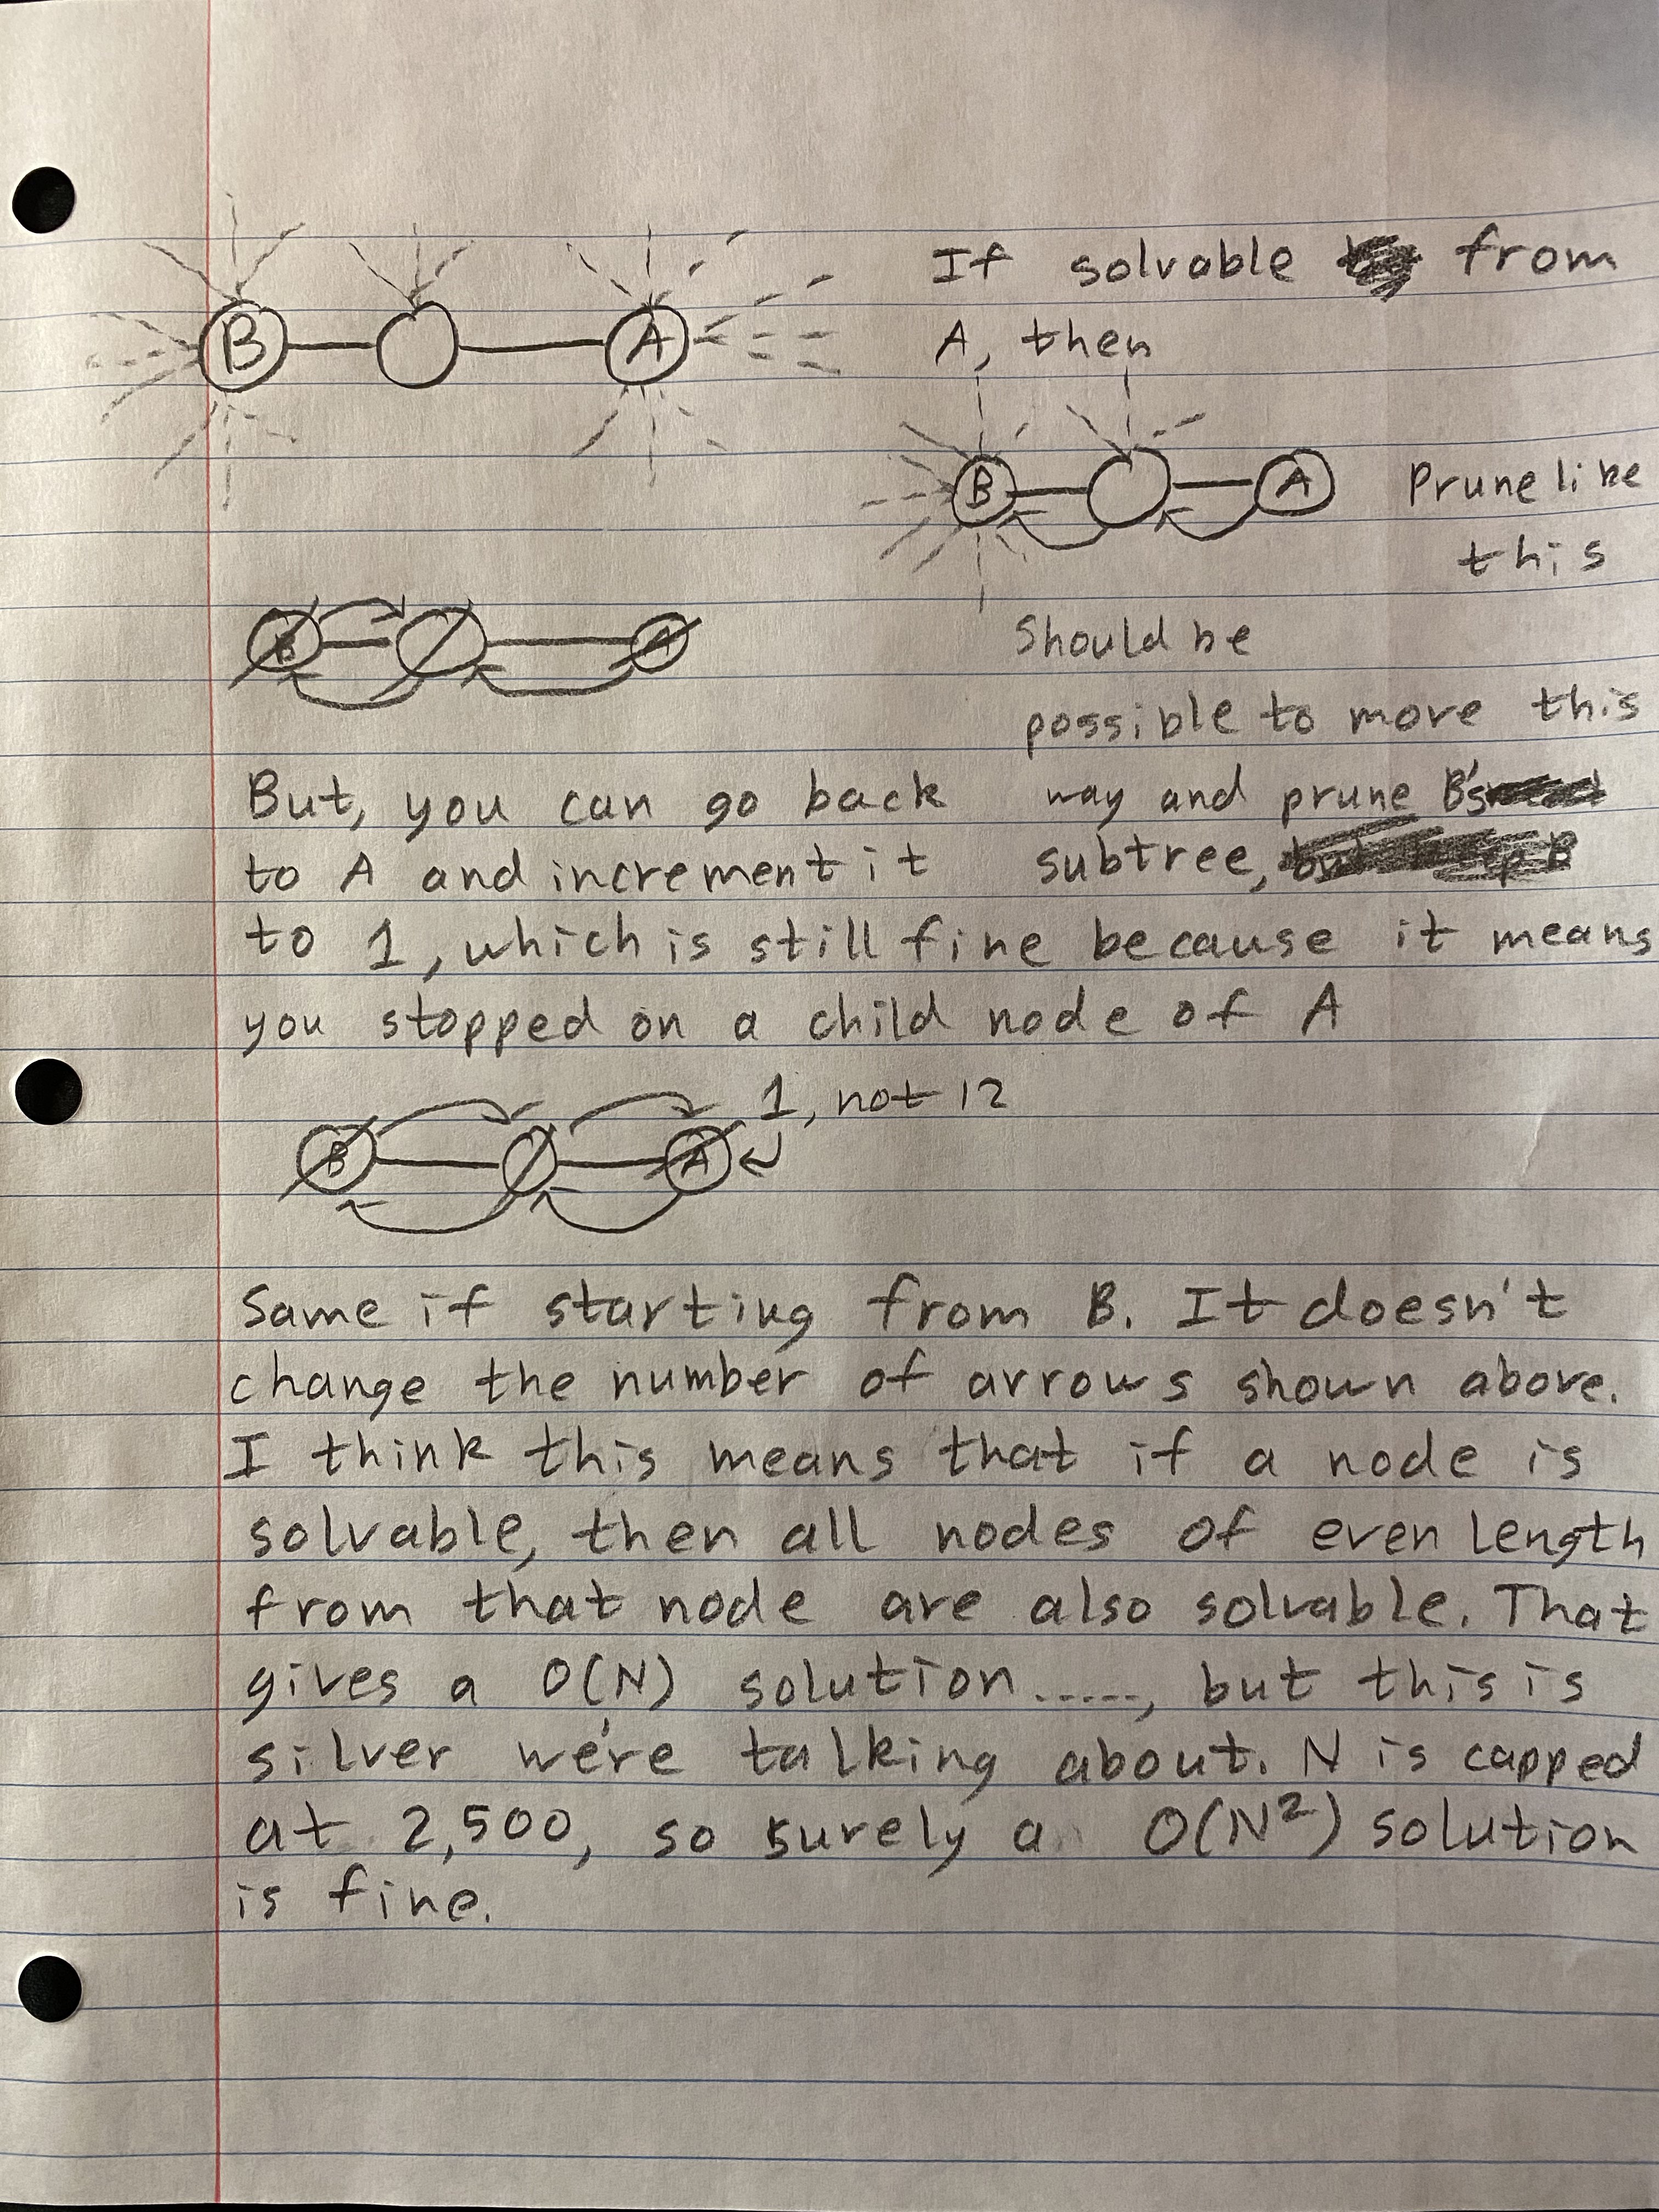 B
A
If solvable from
A, then
B
A
Prune like
this
B
A
Should be
possible to move this
way and prune B's
subtree,
But, you can go back
to A and increment it
to 1, which is still fine because it means
you stopped on a child node of A
1, not 12
B
A
Same if starting from B. It doesn't
change the number of arrows shown above.
I think this means that if a node is
solvable, then all nodes of even length
from that node are also solvable. That
gives a O(N) solution....., but this is
silver we're talking about. N is capped
at 2,500, so surely a O(N²) solution
is fine.